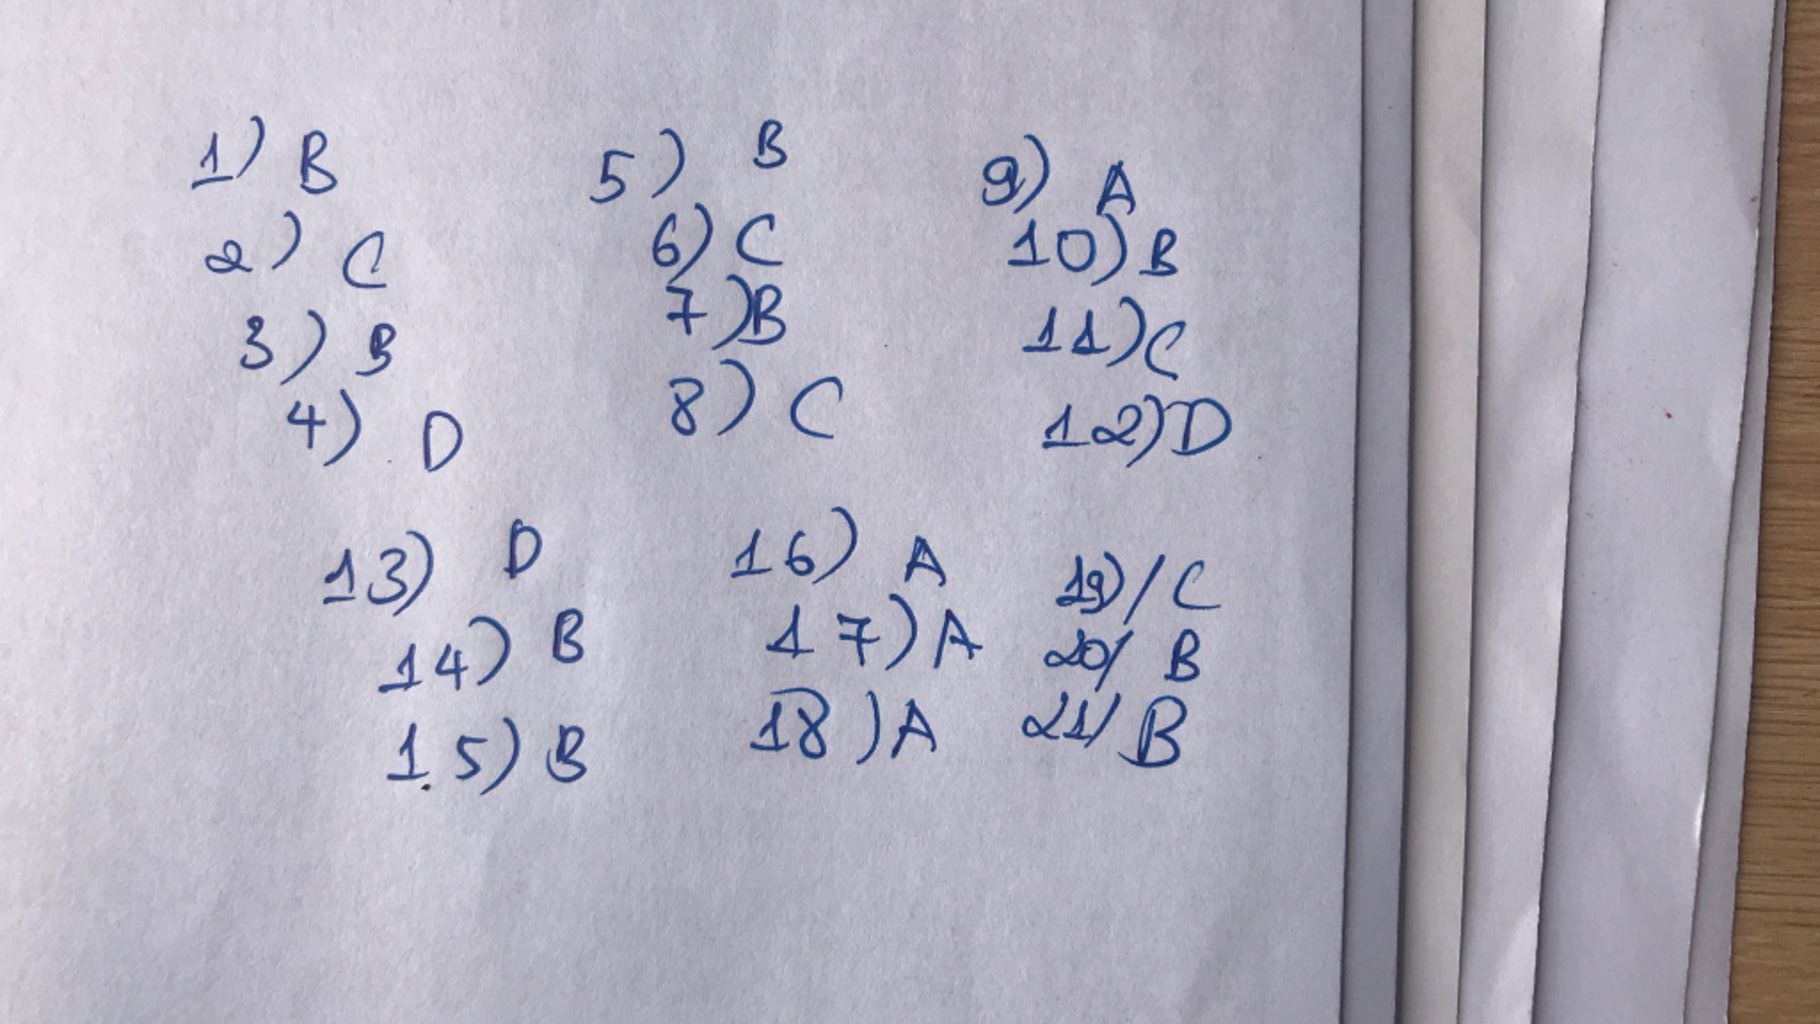 1) B
2) C
3) B
4) D
5) B
6) C
7) B
8) C
9) A
10) B
11) C
12) D
13) D
14) B
15) B
16) A
17) A
18) A
19)/ C
20/ B
21/ B